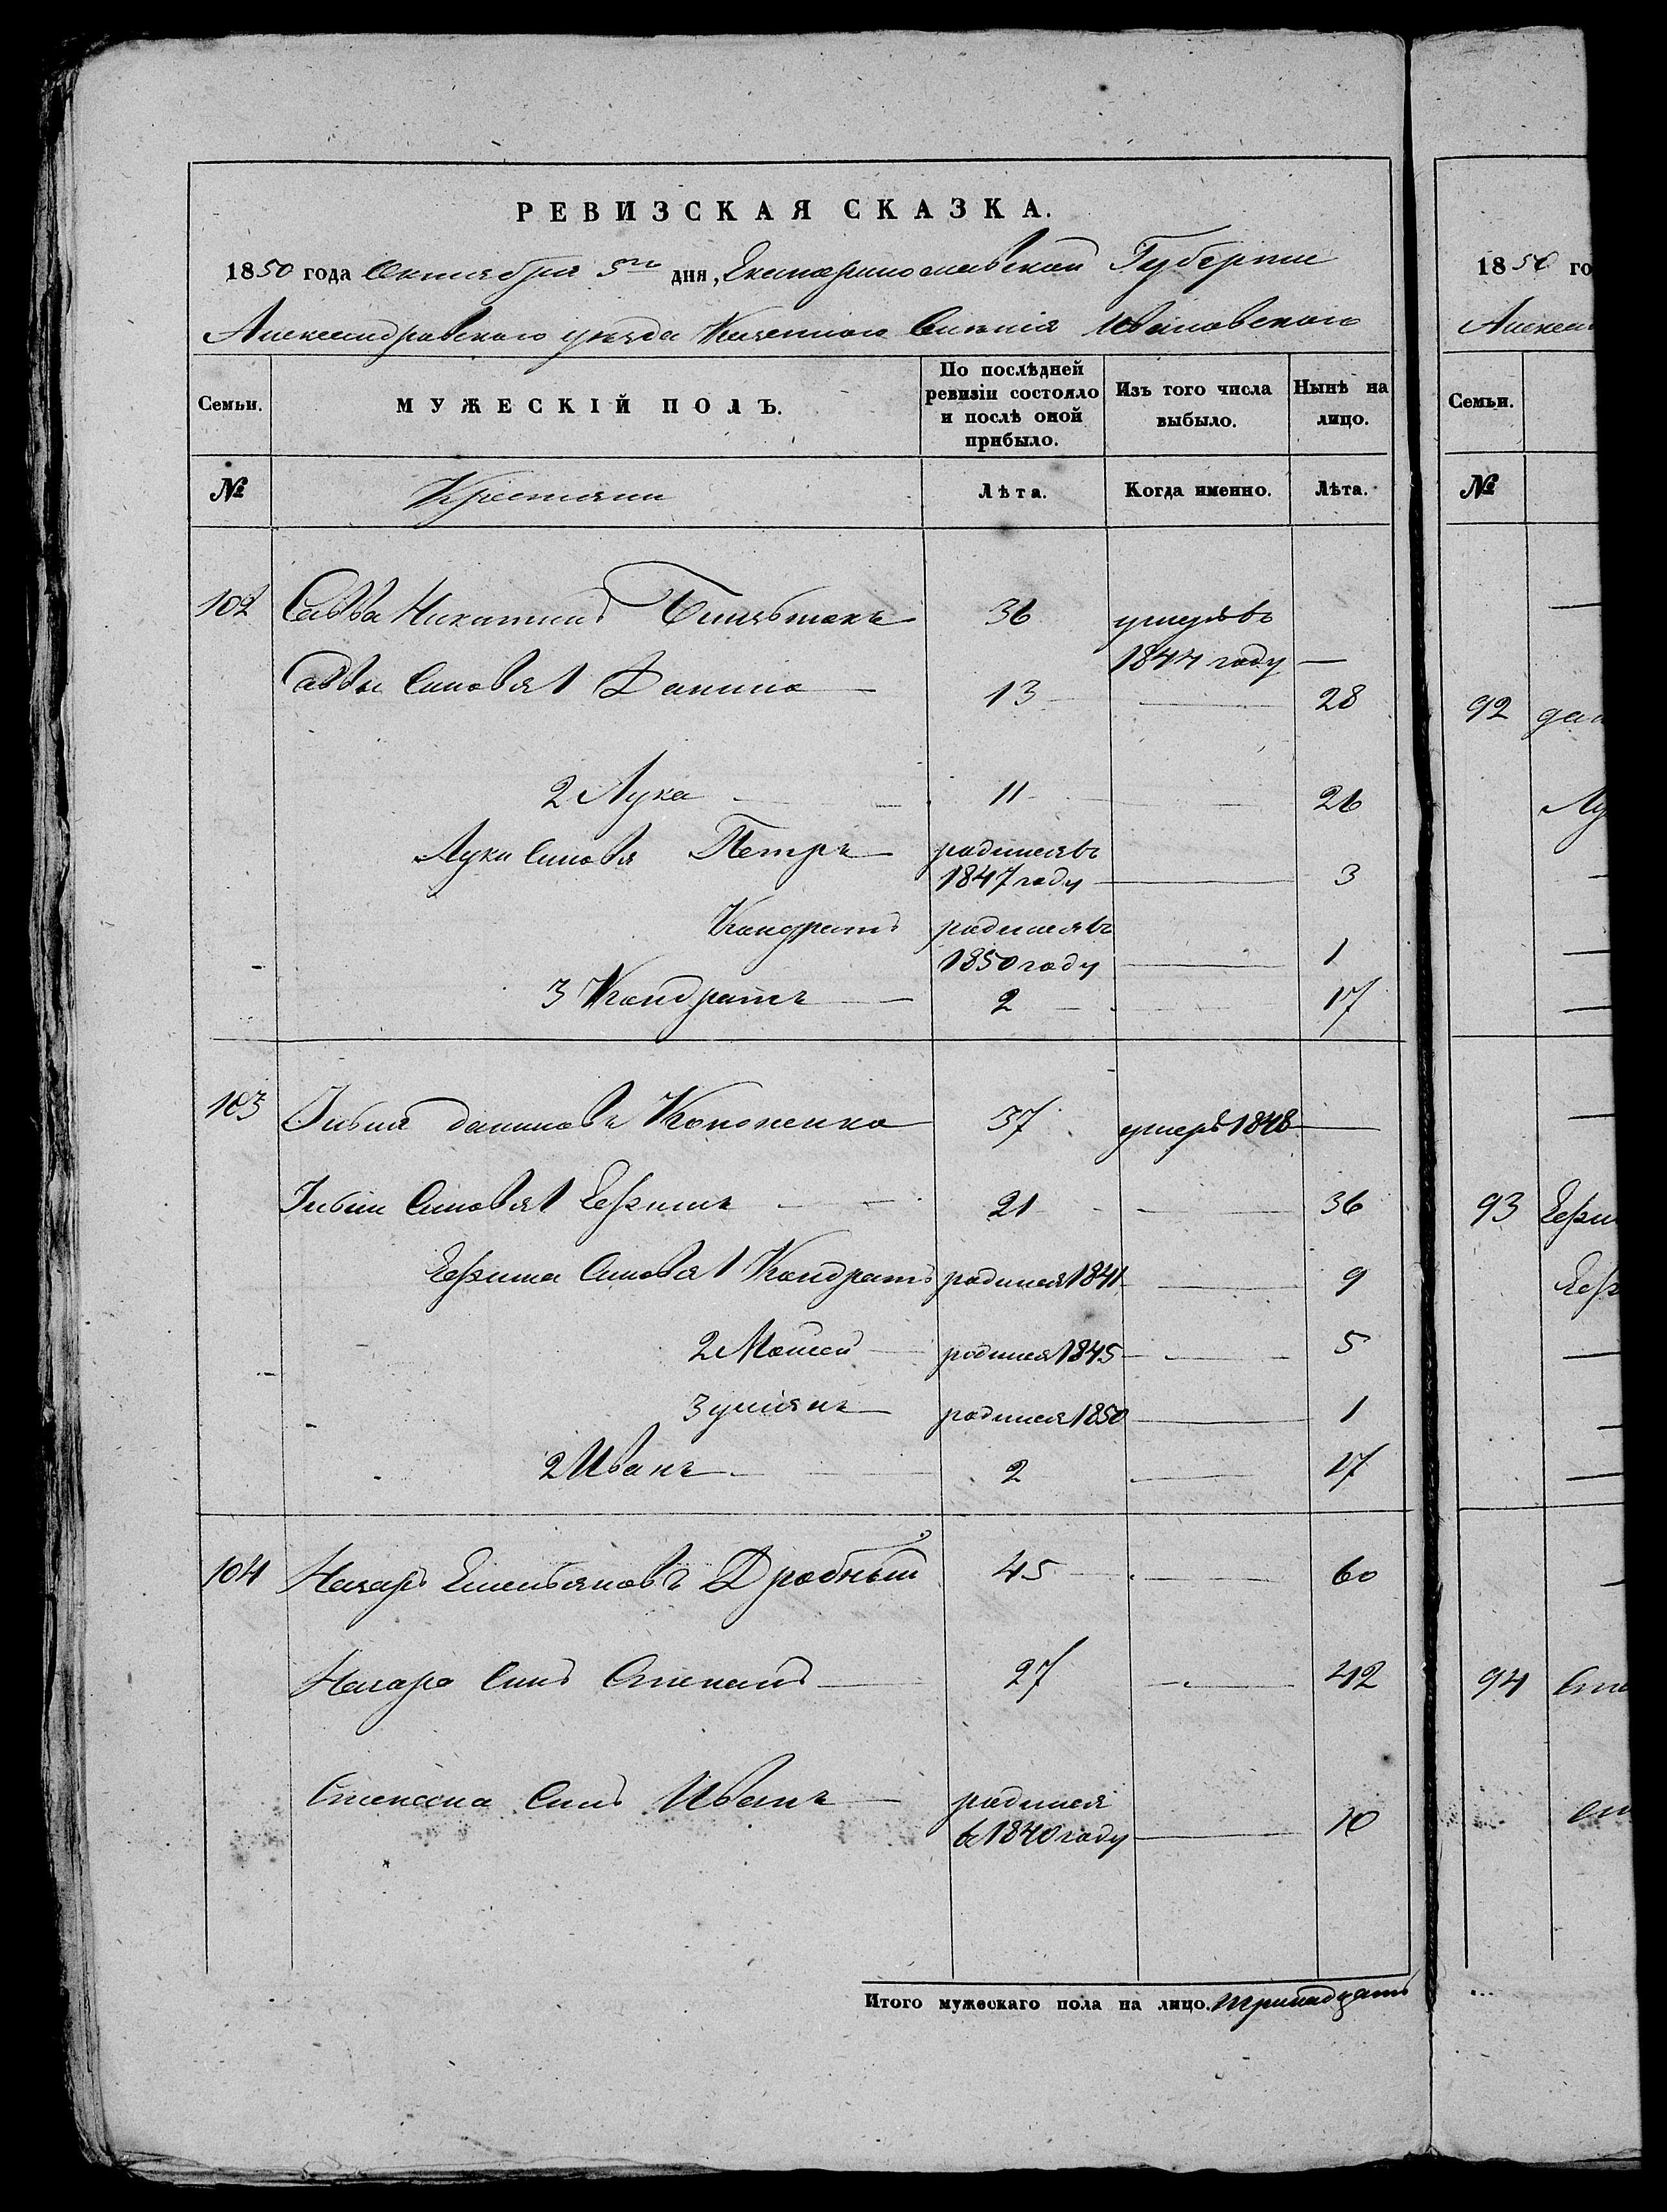 РЕВИЗСКАЯ СКАЗКА.
1850 года Октября 5го дня, Екатеринославской Губернии
Александровского уезда Казенного Селения Ивановского
Семьи. МУЖЕСКІЙ ПОЛЪ. По послѣдней ревизіи состояло и послѣ оной прибыло. Изъ того числа выбыло. Нынѣ на лицо.
№ Крестяни Лѣта. Когда именно. Лѣта.
102 Савва Никитинъ 36 умеръ въ
1844 году —
Саввы синовя 1 Данило — 13 — 28
2 Лука — 11 — 26
Луки синовя Петръ — родился въ
1847 году — 3
Кондратъ родился въ
1850 году — 1
3 Кондратъ — 2 — 17
103 Данилов Кононенко 37 умеръ 1848 —
синовя 1 Ефимъ — 21 — 36
Ефима синовя 1 Кондратъ родился 1841 — 9
2 Моисей — родился 1845 — 5
3 — родился 1850 — 1
2 Иванъ — 2 — 17
104 Назаръ Емельяновъ Дробный 45 — 60
Назара синъ Степанъ — 27 — 42
Степана синъ Иванъ — родился
в 1840 году — 10
Итого мужескаго пола на лицо. тринадцать
1850 го
Алексан
Семьи.
№
92 дан
Лу
93 Ефи
Еф
94 Сте